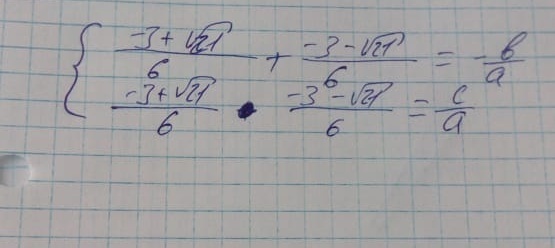 { (-3+√21)/6 + (-3-√21)/6 = -b/a
(-3+√21)/6 • (-3-√21)/6 = c/a